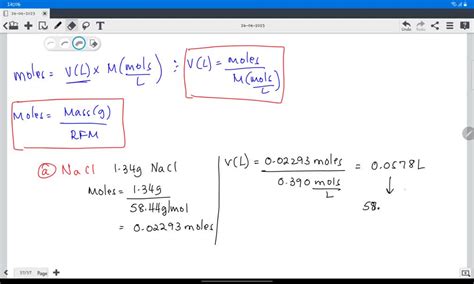 26-06-2023
26-06-2023
moles = V(L) x M(mols/L) ∴ V(L) = moles / M(mols/L)
Moles = Mass(g) / RFM
(a) NaCl 1.34g NaCl
Moles = 1.34g / 58.44g/mol
= 0.02293 moles
V(L) = 0.02293 moles / 0.390 mols/L = 0.0578L
↓
58.
37/37 Page